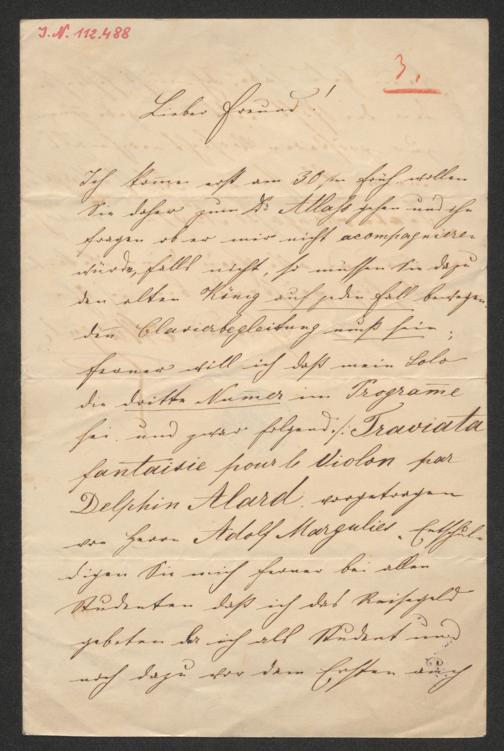 I. N. 112.488
3.
Lieber Freund!
Ich komme erst am 30ten früh wollen
Sie daher zum Dr Atlaß gehen und ihn
fragen ob er mir nicht acompagnieren
würde, falls nicht, so müssen Sie dazu
den alten König auf jeden Fall bewegen
den Clavierbegleitung muß sein,
ferner will ich daß mein Solo
die dritte Numer im Programme
sei und zwar folgend: /: Traviata
fantaisie pour le Violon par
Delphin Alard vorgetragen
von Herrn Adolf Margulies. Entschul-
digen Sie mich ferner bei allen
Studenten daß ich das Reisegeld
gebeten da ich als Student und
noch dazu vor dem Ersten auch